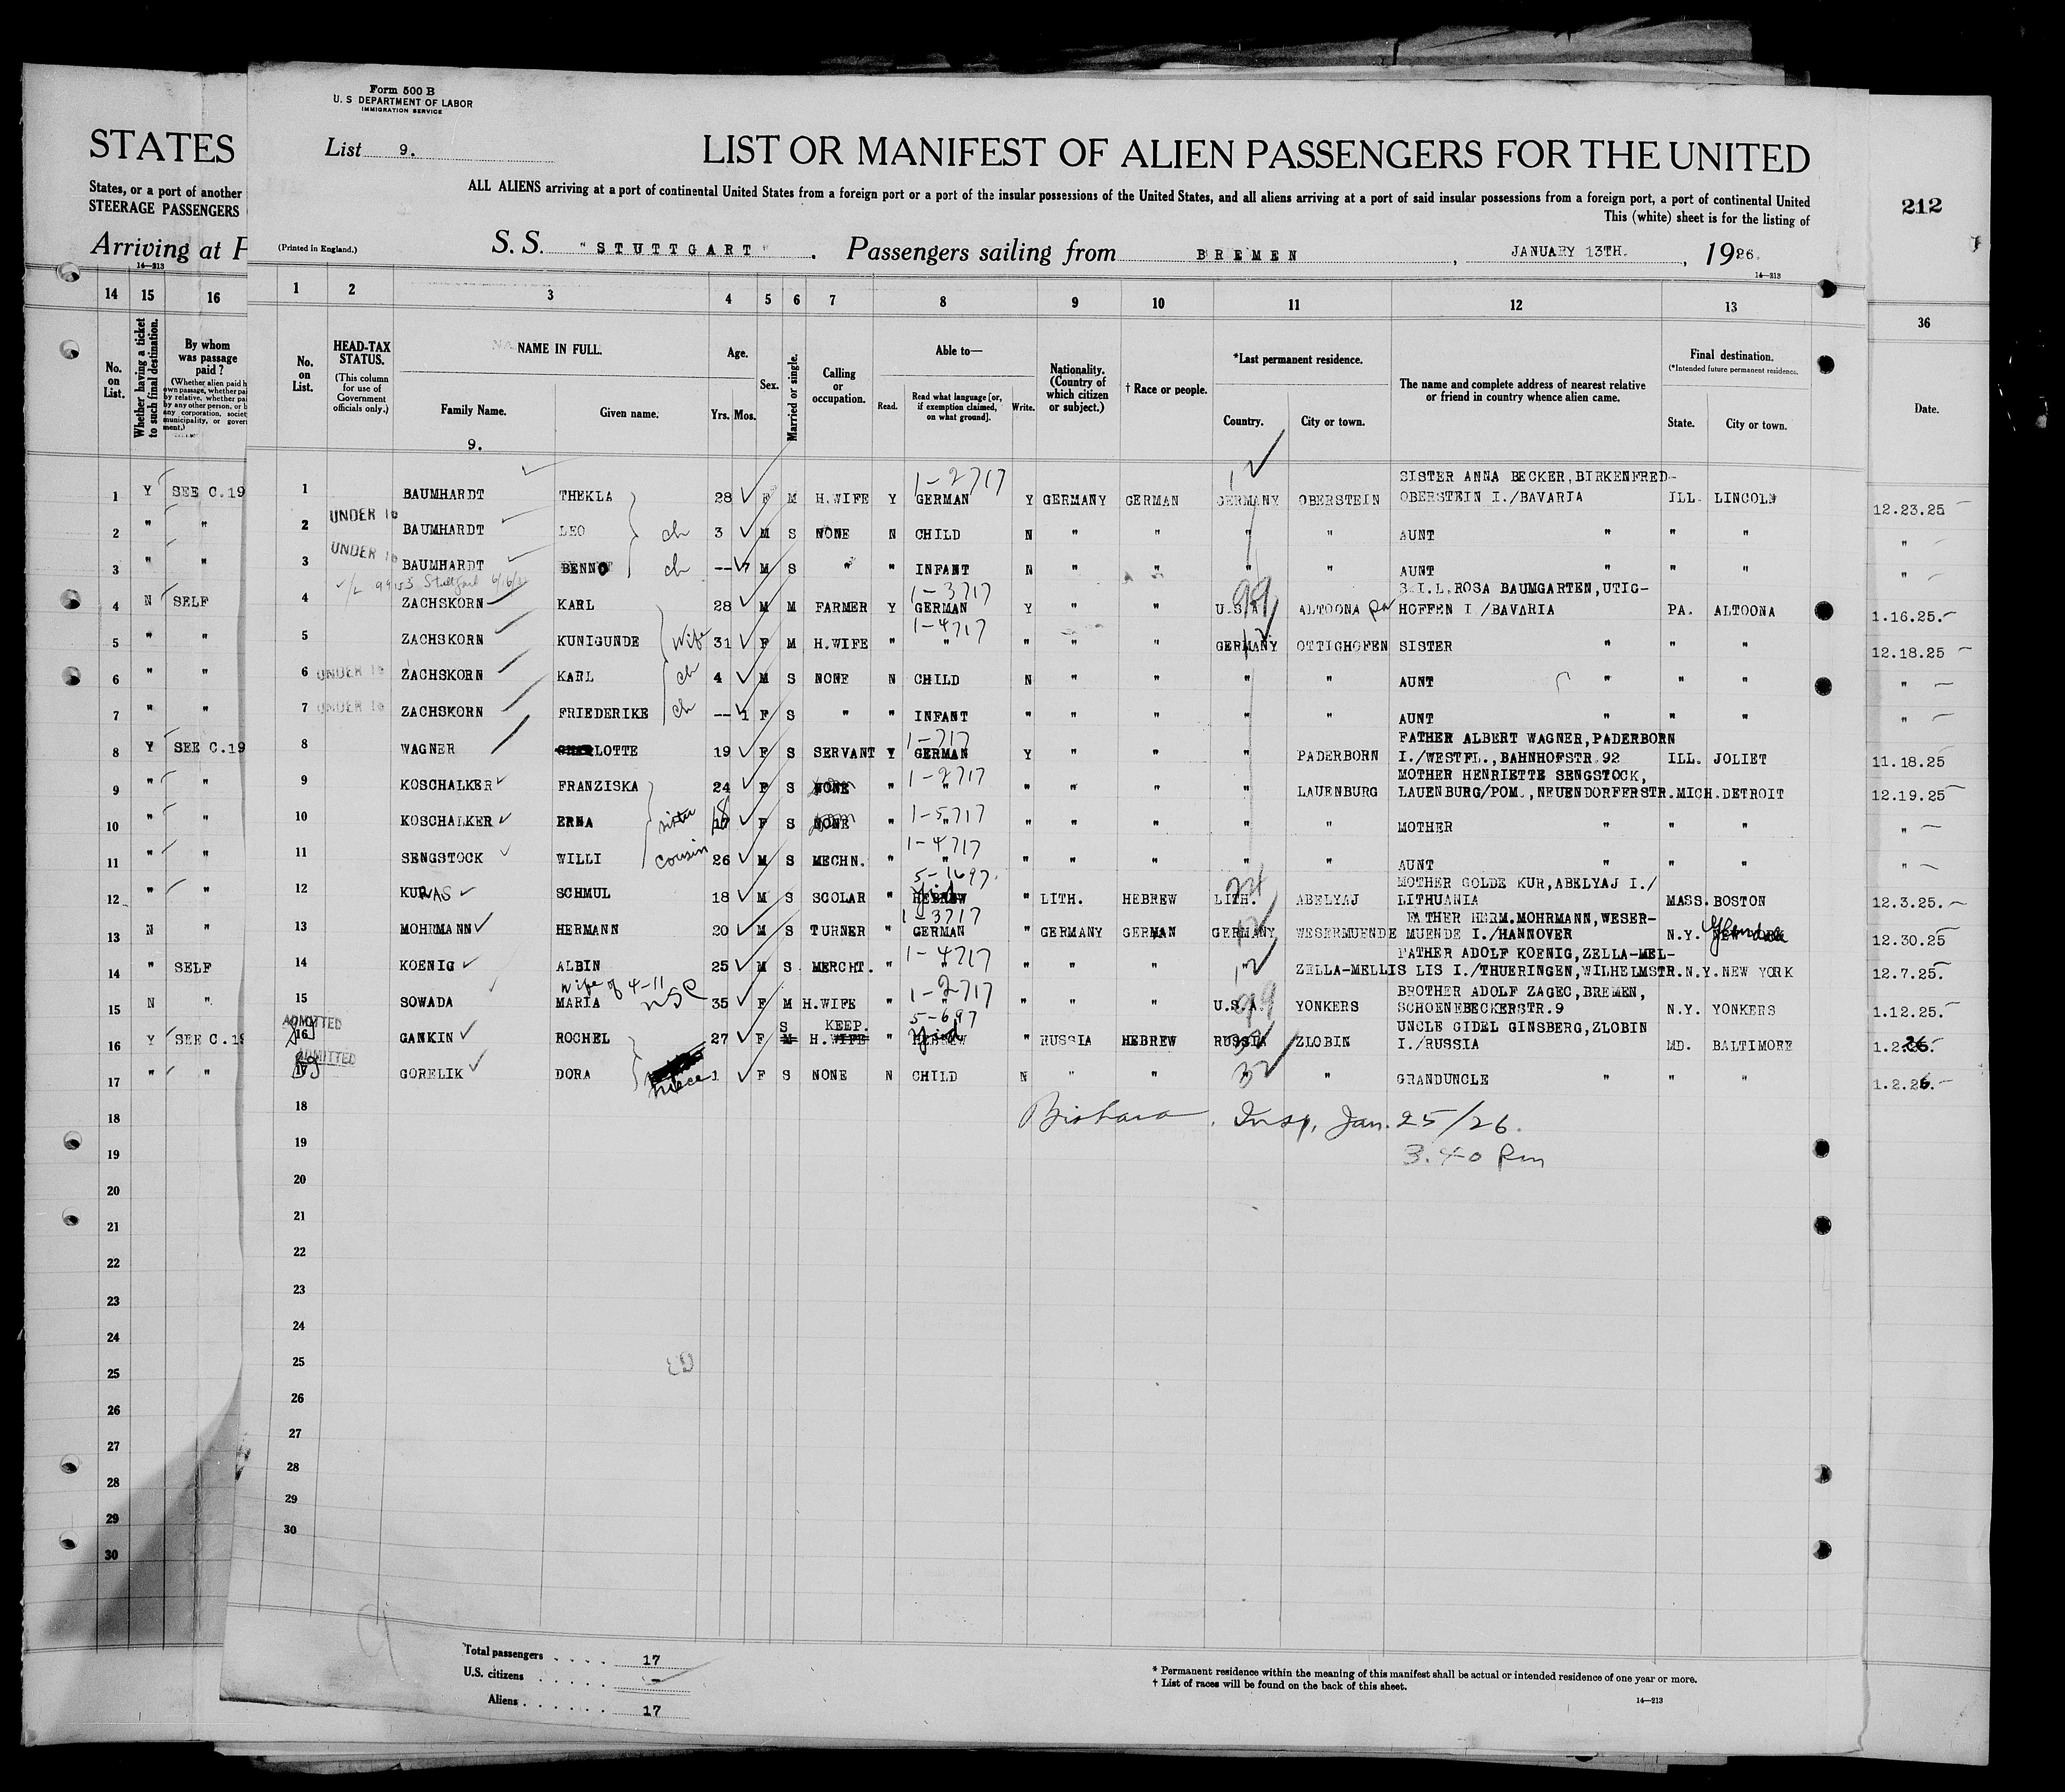 Form 500 B
U. S DEPARTMENT OF LABOR
IMMIGRATION SERVICE
List 9.
LIST OR MANIFEST OF ALIEN PASSENGERS FOR THE UNITED
ALL ALIENS arriving at a port of continental United States from a foreign port or a port of the insular possessions of the United States, and all aliens arriving at a port of said insular possessions from a foreign port, a port of continental United
This (white) sheet is for the listing of
(Printed in England.)
S.S. "STUTTGART". Passengers sailing from BREMEN, JANUARY 13TH., 1926.
14—213
STATES
States, or a port of another
STEERAGE PASSENGERS
Arriving at P
14—213
212
14 15 16
1 2 3 4 5 6 7 8 9 10 11 12 13
36
No. on List.
Whether having a ticket to such final destination.
By whom was passage paid?
No. on List.
HEAD-TAX STATUS.
(This column for use of Government officials only.)
NAME IN FULL.
Family Name. Given name.
9.
Age.
Yrs. Mos.
Sex.
Married or single.
Calling or occupation.
Able to—
Read. Read what language [or, if exemption claimed, on what ground]. Write.
Nationality. (Country of which citizen or subject.)
† Race or people.
*Last permanent residence.
Country. City or town.
The name and complete address of nearest relative or friend in country whence alien came.
Final destination.
(*Intended future permanent residence.
State. City or town.
Date.
1 Y SEE C.19
2 " "
3 " "
4 N SELF
5 " "
6 " "
7 " "
8 Y SEE C.19
9 " "
10 " "
11 " "
12 " "
13 N "
14 " SELF
15 N "
16 Y SEE C.19
17 " "
18
19
20
21
22
23
24
25
26
27
28
29
30
1-2717 SISTER ANNA BECKER,BIRKENFRED-
1 BAUMHARDT THEKLA 28 F M H.WIFE Y GERMAN Y GERMANY GERMAN GERMANY OBERSTEIN OBERSTEIN I./BAVARIA ILL. LINCOLN 12.23.25
UNDER 16
2 BAUMHARDT LEO ch 3 M S NONE N CHILD N " " " " AUNT " " " "
UNDER 16
3 BAUMHARDT BENNO ch -- 7 M S " " INFANT N " " " " AUNT " " " "
1-3717 S.I.L.ROSA BAUMGARTEN,UTIG-
4 ZACHSKORN KARL 28 M M FARMER Y GERMAN Y " " U.S.A. 99 ALTOONA Pa HOFFEN I /BAVARIA PA. ALTOONA 1.16.25.
1-4717
5 ZACHSKORN KUNIGUNDE Wife 31 F M H.WIFE " " " " " GERMANY OTTIGHOFEN SISTER " " " 12.18.25
6 UNDER 16 ZACHSKORN KARL ch 4 M S NONE N CHILD N " " " " AUNT " " " "
7 UNDER 16 ZACHSKORN FRIEDERIKE ch -- 1 F S " " INFANT " " " " " AUNT " " " "
1-717 FATHER ALBERT WAGNER,PADERBORN
8 WAGNER LOTTE 19 F S SERVANT Y GERMAN Y " " " PADERBORN I./WESTFL.,BAHNHOFSTR.92 ILL. JOLIET 11.18.25
1-2717 MOTHER HENRIETTE SENGSTOCK,
9 KOSCHALKER FRANZISKA 24 F S NONE " " " " " " LAUENBURG LAUENBURG/POM.,NEUENDORFERSTR. MICH. DETROIT 12.19.25
1-5717
10 KOSCHALKER ERNA sister 18 17 F S NONE " " " " " " " MOTHER " " " "
1-4717
11 SENGSTOCK WILLI cousin 26 M S MECHN. " " " " " " " AUNT " " " "
5-1697. MOTHER GOLDE KUR,ABELYAJ I./
12 KURAS SCHMUL 18 M S SCOLAR " HEBREW Yid " LITH. HEBREW LITH. 24 ABELYAJ LITHUANIA MASS. BOSTON 12.3.25.
1-3717 FATHER HERM.MOHRMANN,WESER-
13 MOHRMANN HERMANN 20 M S TURNER " GERMAN " GERMANY GERMAN GERMANY WESERMUENDE MUENDE I./HANNOVER N.Y. NEW YORK Glendale 12.30.25
1-4717 FATHER ADOLF KOENIG,ZELLA-MEL-
14 KOENIG ALBIN 25 M S MERCHT. " " " " " " ZELLA-MELLIS LIS I./THUERINGEN,WILHELMSTR. N.Y. NEW YORK 12.7.25.
Wife of 4-11 1-2717 BROTHER ADOLF ZAGEC,BREMEN,
15 SOWADA MARIA 35 F M H.WIFE " " " " " U.S.A. 99 YONKERS SCHOENEBECKERSTR.9 N.Y. YONKERS 1.12.25.
ADMITTED S KEEP. 5-697 UNCLE GIDEL GINSBERG,ZLOBIN
16 GANKIN ROCHEL 27 F M H.WIFE " HEBREW Yid " RUSSIA HEBREW RUSSIA 32 ZLOBIN I./RUSSIA MD. BALTIMORE 1.2.26.
ADMITTED
17 GORELIK DORA niece 1 F S NONE N CHILD N " " 32 " GRANDUNCLE " " " 1.2.26.
18 Bishara, Insp, Jan. 25/26.
19 3.40 Pm
20
21
22
23
24
25
26
27
28
29
30
Total passengers . . . . 17
U.S. citizens . . . . . -
Aliens . . . . . . 17
* Permanent residence within the meaning of this manifest shall be actual or intended residence of one year or more.
† List of races will be found on the back of this sheet.
14—213